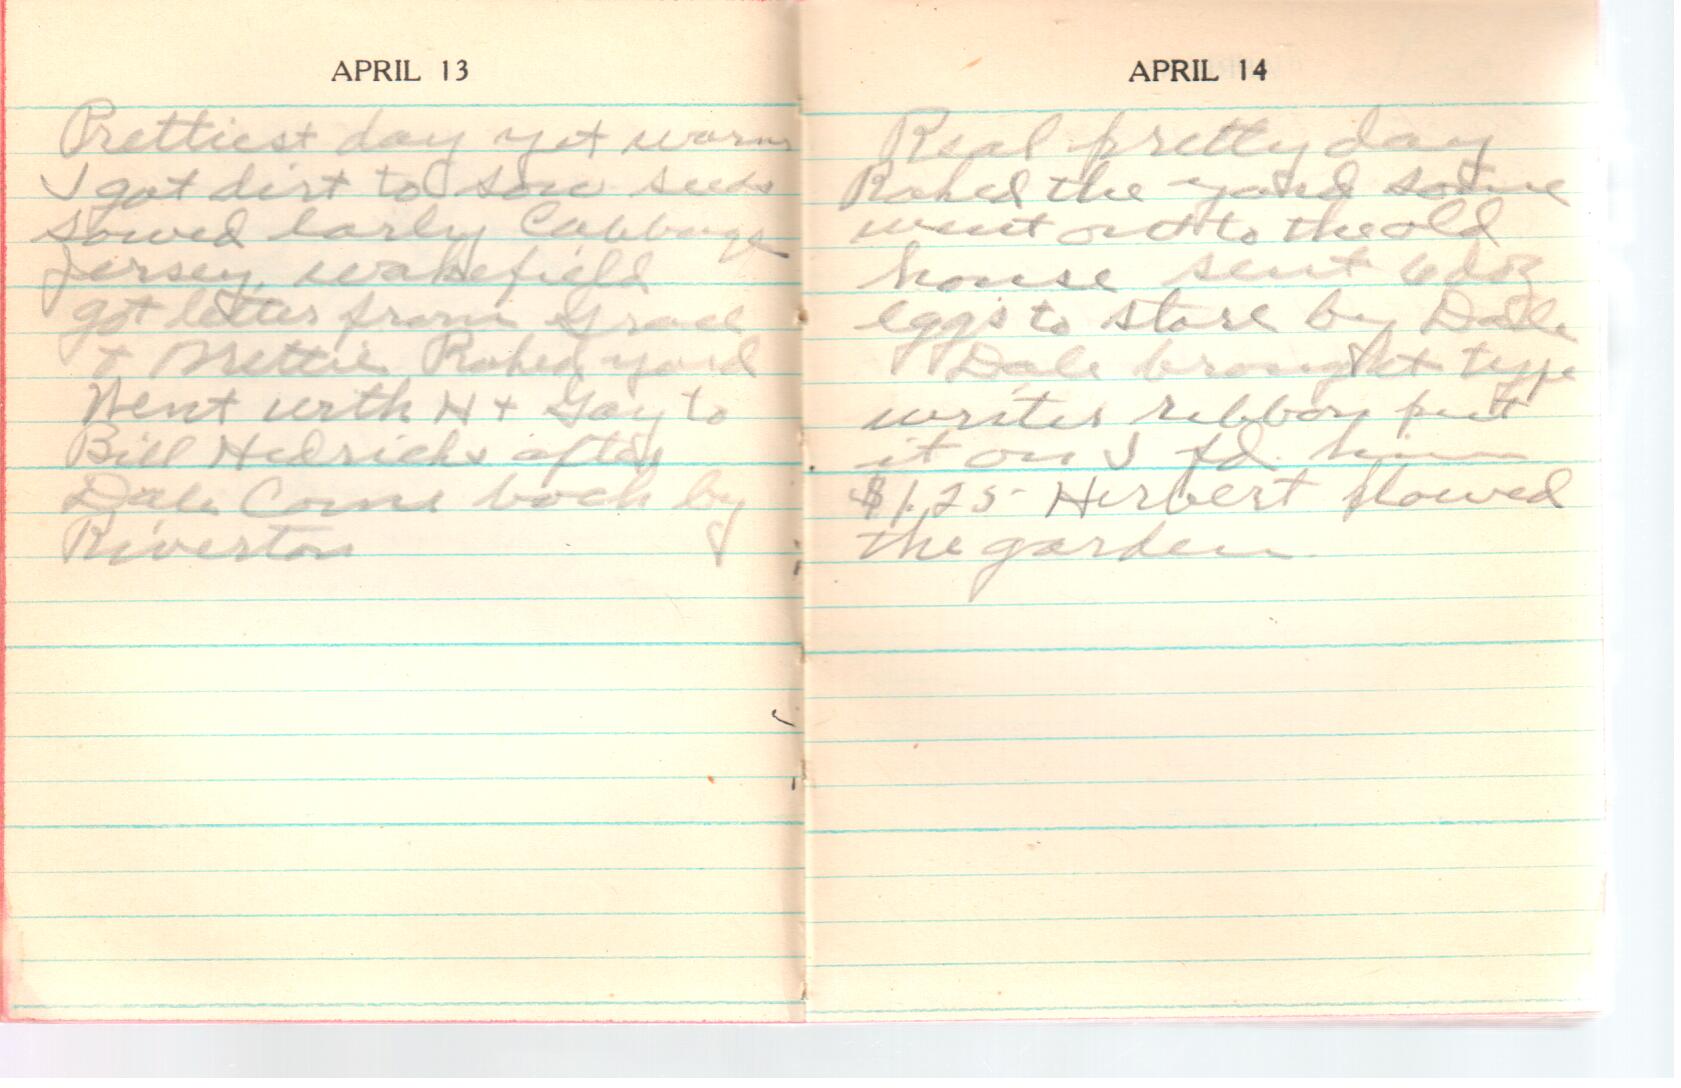 APRIL 13
Prettiest day yet warm
I got dirt to sow seeds
sowed Early Cabbage
Jersey wakefield
got letter from Grace
+ Mettie Raked yard
Went with H + Gay to
Bill Hedricks after
Dale Come back by
Riverton
APRIL 14
Real pretty day
Raked the yard some
went out to the old
house sent 6 doz
eggs to store by Dale
Dale brought type
writer ribbon put
it on I pd. him
$1.25 Herbert plowed
the garden